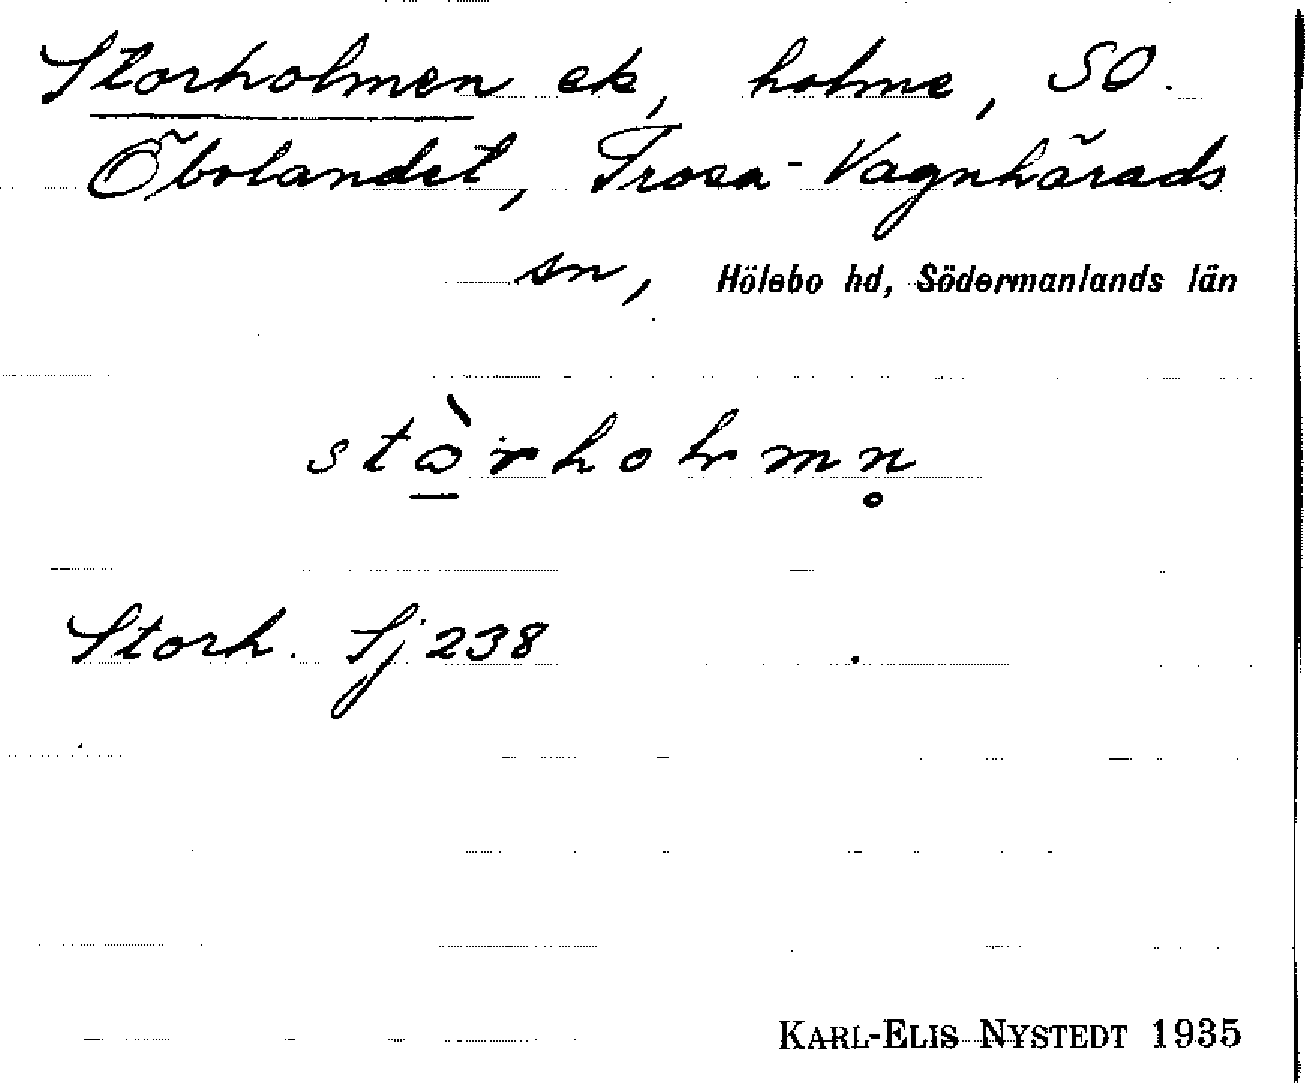 Storholmen ek, holme, SO.
Öbolandet, Trosa-Vagnhärads
sn, Hölebo hd, Södermanlands län
stὼrholmn̥
Storh. Sj 238
KARL-ELIS NYSTEDT 1935